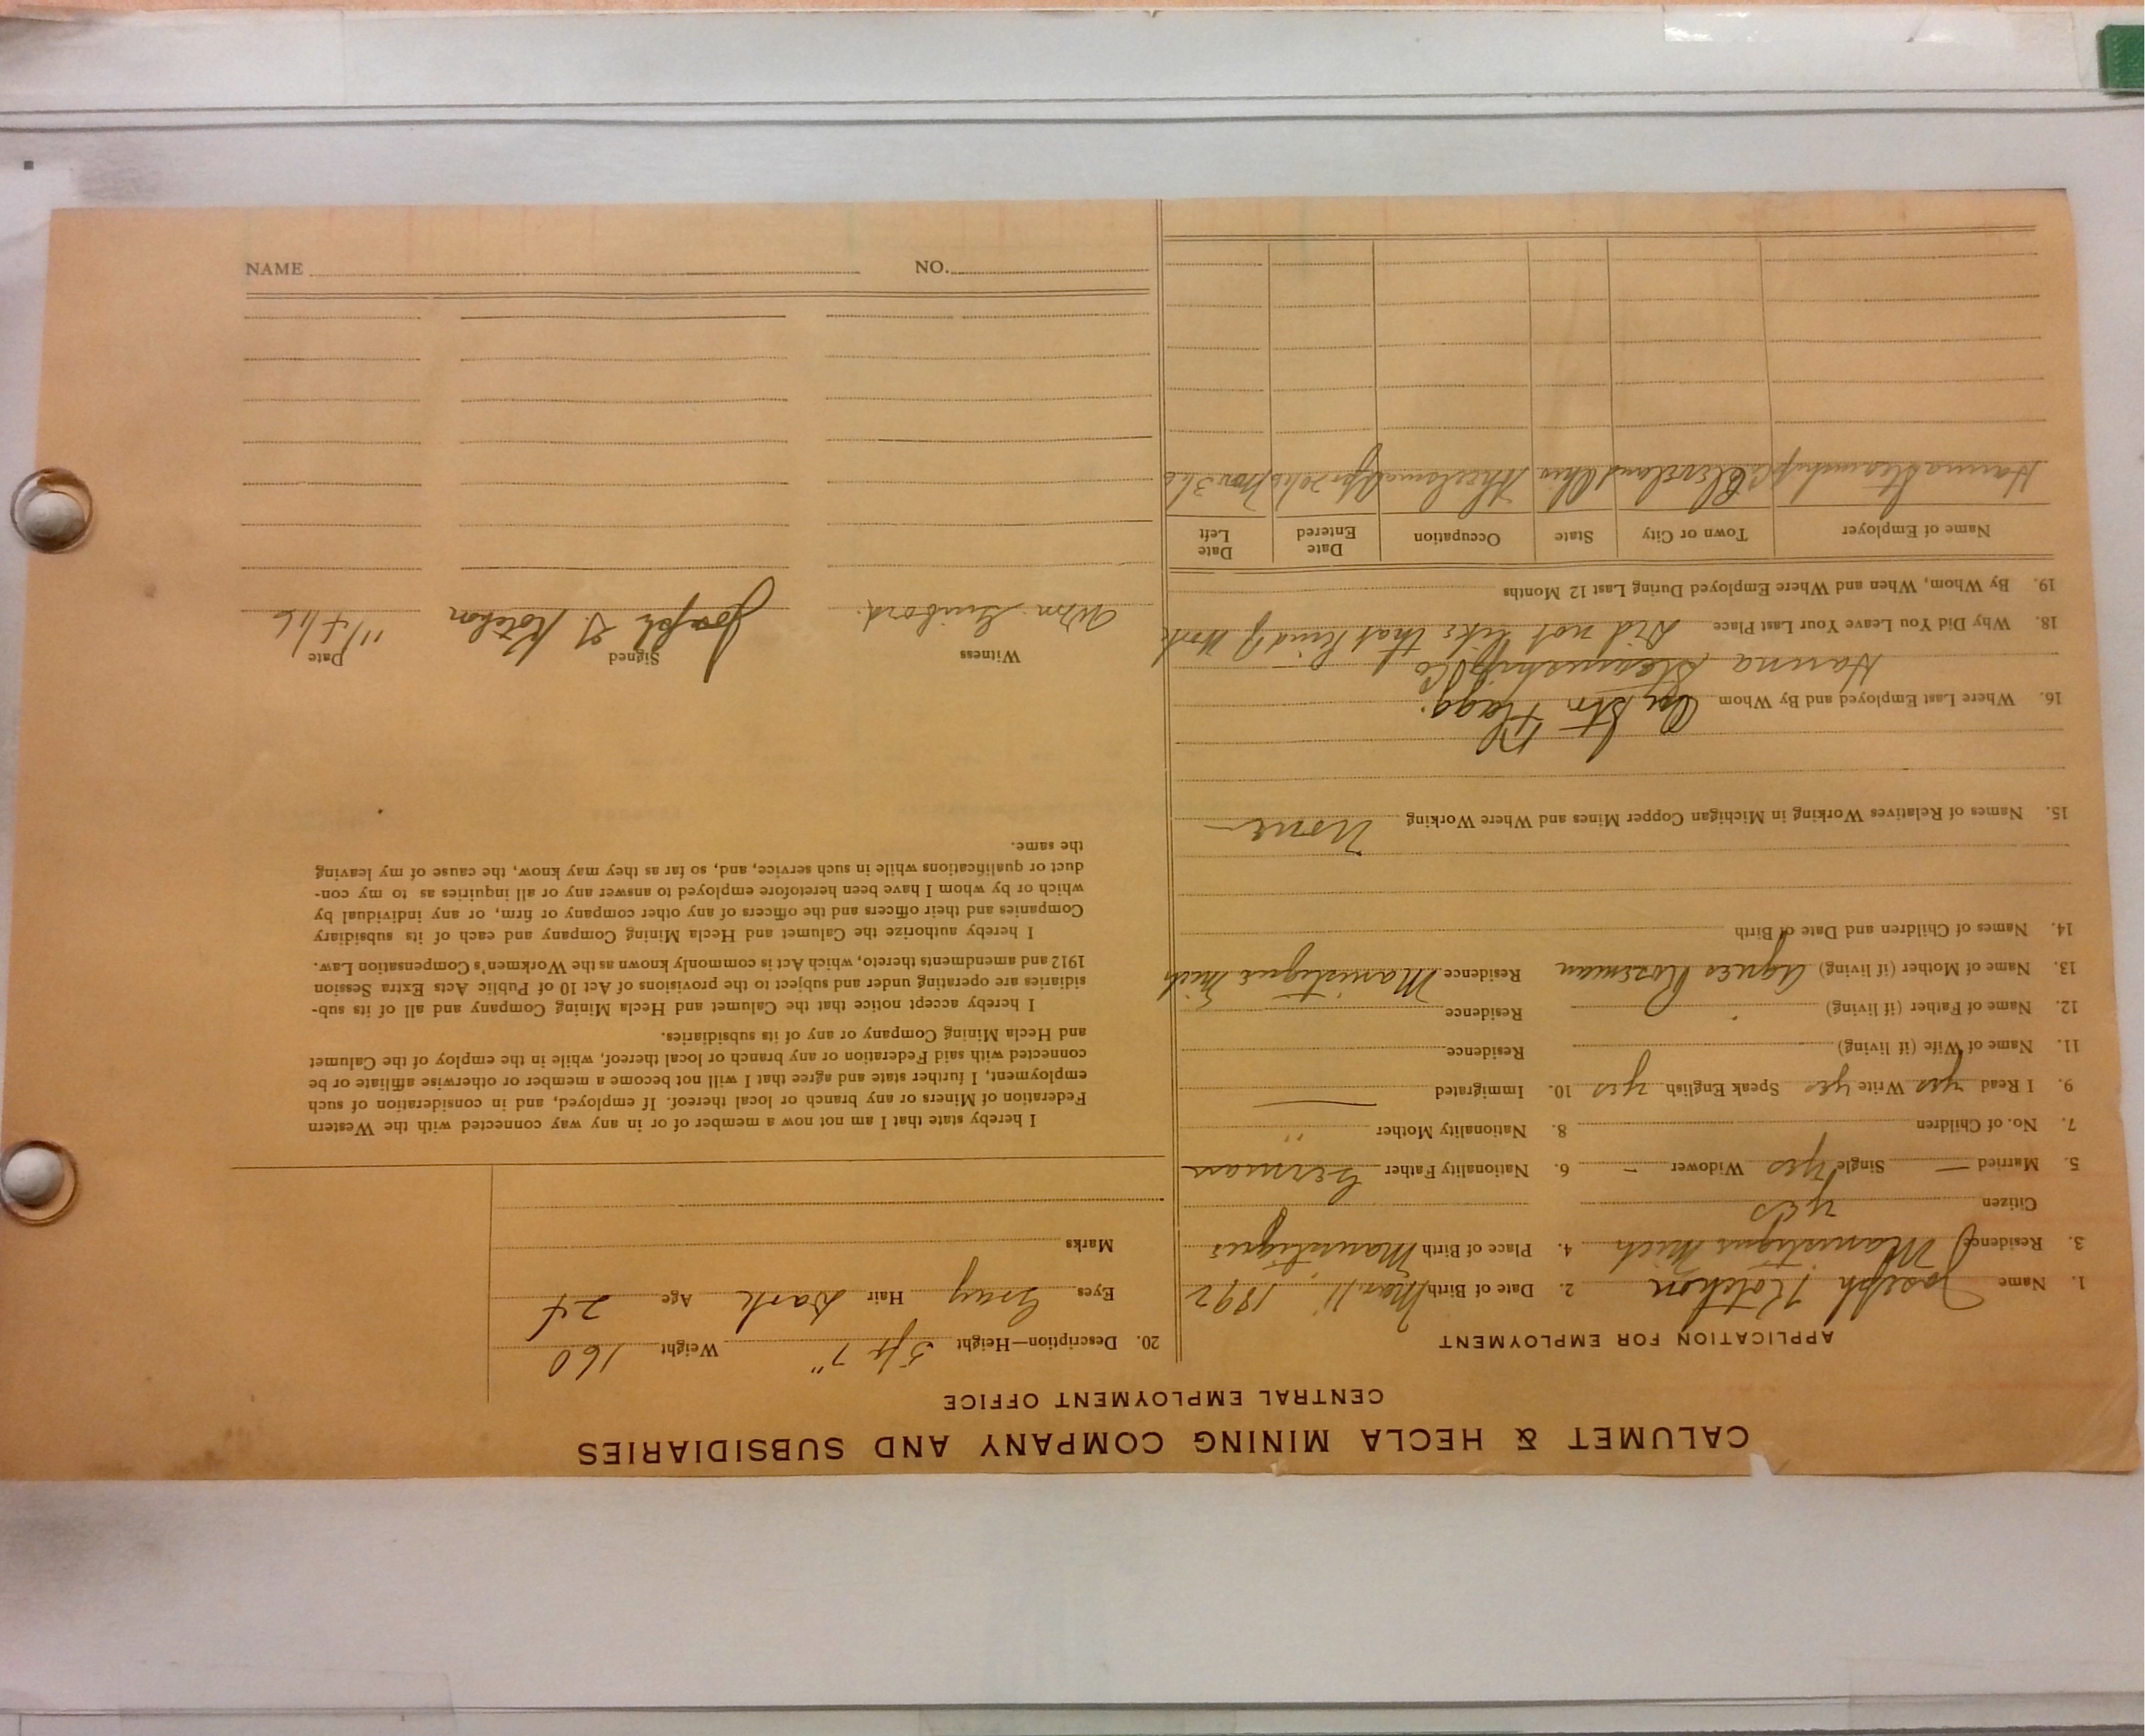 CALUMET & HECLA MINING COMPANY AND SUBSIDIARIES
CENTRAL EMPLOYMENT OFFICE
APPLICATION FOR EMPLOYMENT
1. Name Joseph Kotchon 2. Date of Birth Mar. 11, 1892
3. Residence Manistique Mich 4. Place of Birth Manistique
Citizen yes
5. Married — Single yes Widower — 6. Nationality Father German
7. No. of Children 8. Nationality Mother "
9. I Read yes Write yes Speak English yes 10. Immigrated
11. Name of Wife (if living) Residence
12. Name of Father (if living) Residence
13. Name of Mother (if living) Agnes Rozeman Residence Manistique Mich
14. Names of Children and Date of Birth
15. Names of Relatives Working in Michigan Copper Mines and Where Working None
16. Where Last Employed and By Whom On Str Flagg.
Hanna Steamship Co
18. Why Did You Leave Your Last Place Did not like that kind of Work
19. By Whom, When and Where Employed During Last 12 Months
Name of Employer Town or City State Occupation Date Entered Date Left
Hanna Steamship Co Cleveland Ohio Wheelsman Apr 20/16 Nov 3/16
20. Description—Height 5 ft 7" Weight 160
Eyes Gray Hair Dark Age 24
Marks
I hereby state that I am not now a member of or in any way connected with the Western
Federation of Miners or any branch or local thereof. If employed, and in consideration of such
employment, I further state and agree that I will not become a member or otherwise affiliate or be
connected with said Federation or any branch or local thereof, while in the employ of the Calumet
and Hecla Mining Company or any of its subsidiaries.
I hereby accept notice that the Calumet and Hecla Mining Company and all of its sub-
sidiaries are operating under and subject to the provisions of Act 10 of Public Acts Extra Session
1912 and amendments thereto, which Act is commonly known as the Workmen's Compensation Law.
I hereby authorize the Calumet and Hecla Mining Company and each of its subsidiary
Companies and their officers and the officers of any other company or firm, or any individual by
which or by whom I have been heretofore employed to answer any or all inquiries as to my con-
duct or qualifications while in such service, and, so far as they may know, the cause of my leaving
the same.
Witness Signed Date
Wm Guibord. Joseph Kotchon 11/4/16
NAME NO.